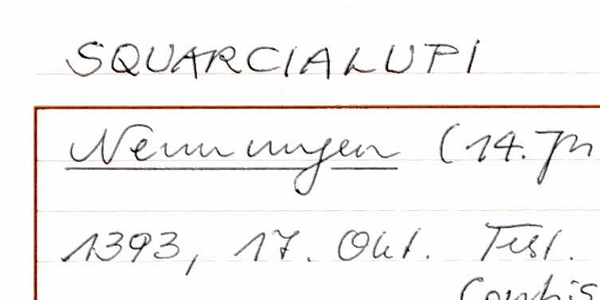 SQUARCIALUPI
Nennungen (14. Jh
1393, 17. Okt. Test.